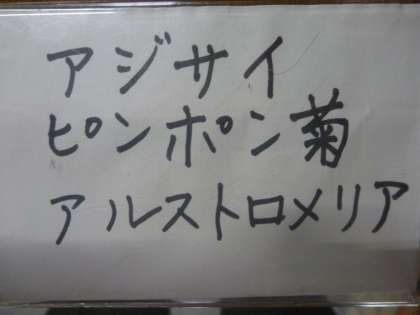 アジサイ
ピンポン菊
アルストロメリア